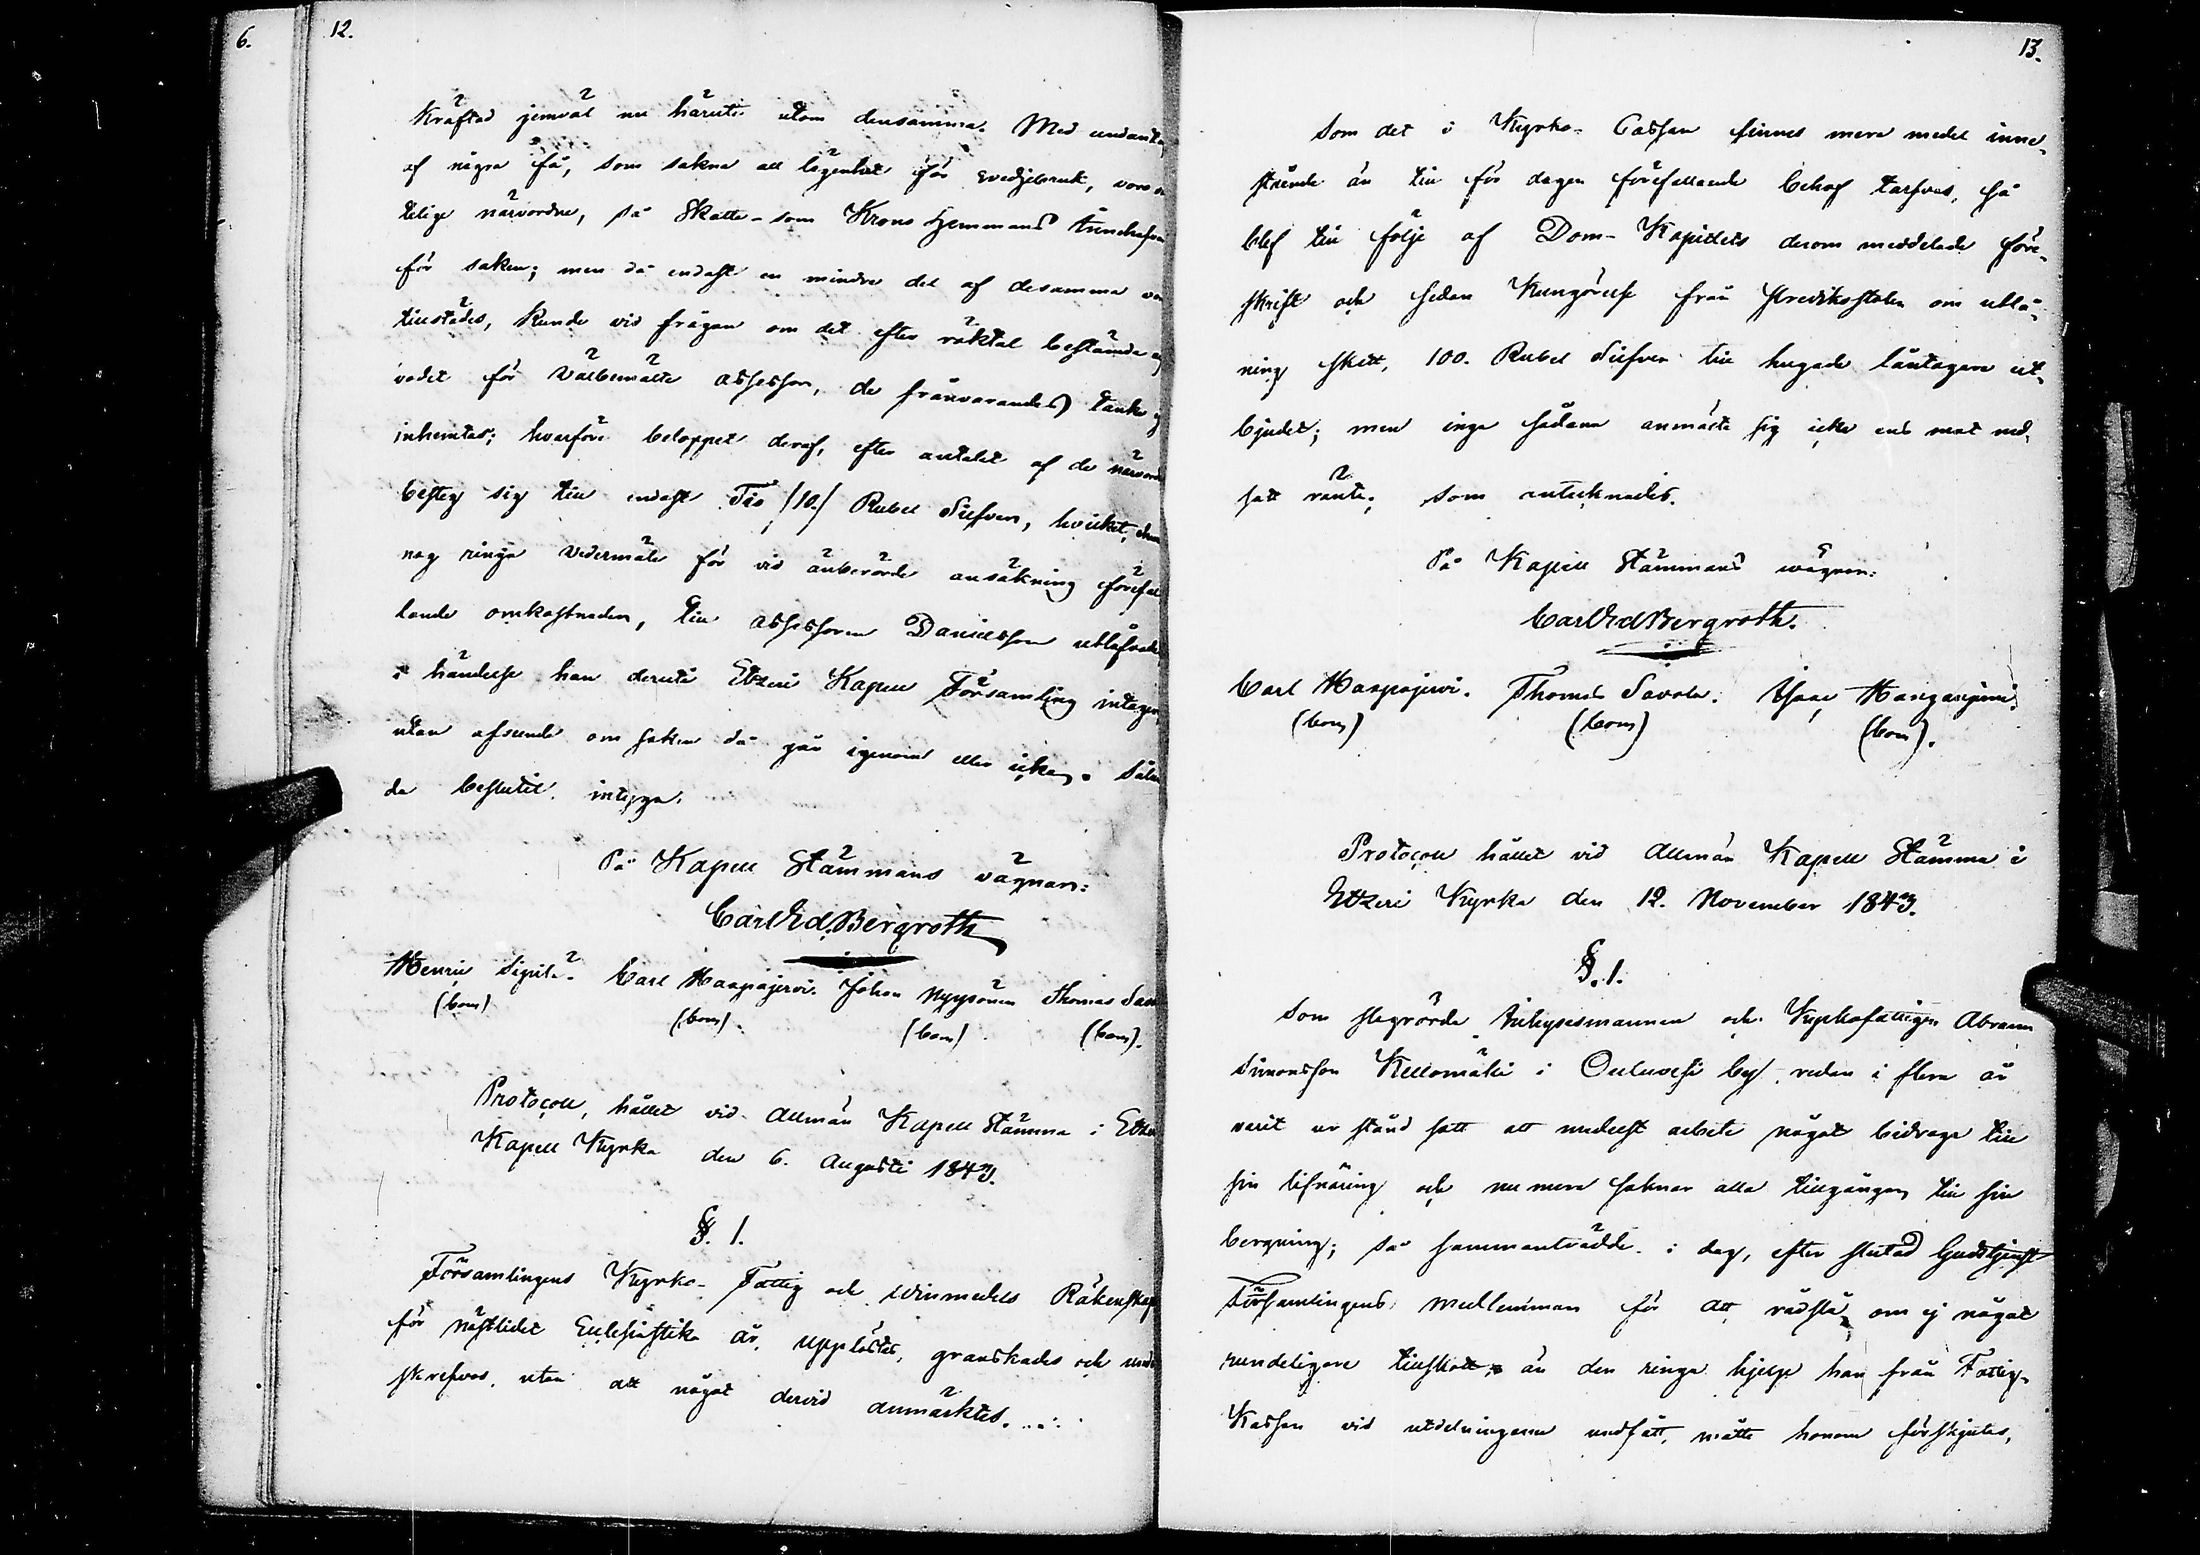 6.
12.
Kräftad jemväl nu härutin utom densamma. Med undantag
af några få, som sakna all lägenhet för svedjebruk, voro
telige närvordne, så Skatte- som Krono Hemmans
för saken; men då endast en mindre del af desamma
tillstädes, kunde vid frågan om det efter röktal bestämda
vodet för välbemälte Assessor, de frånvarandes tanke ej
inhemtas; hvarföre beloppet deraf, efter antalet af de
besteg sig till endast Tio /10./ Rubel Silfver, hvilket,
nog ringa vedermäle för vid ånberörde ansökning
lande omkostnader, till Assessoren Danielsson
i händelse han derutå Etzeri Kapell Församling
utan afseende om saken då går igenom eller icke.
da beslutit. intygga.
På Kapell Stämmans vägnar:
Carl Ed. Bergroth
Henric Sipilä. Carl Haapajervi. Johan Nyysönen Thomas
(bom) (bom). (bom) (bom).
Protocoll, hållet vid Allmän Kapell Stämma i
Kapell Kyrka den 6. Augusti 1843.
§. 1.
Församlingens Kyrko- Fattig och Winmedels
för nästlidet Ecclesiastika år, upplästes, granskades och
skrefvos, utan att något dervid anmärktes.
13.
Som det i Kyrko- Cassan finnes mera medel inne-
stående än till för dagen förefallande behof tarfvas, så
blef till följe af Dom- Kapitlets derom meddelade före-
skrift och sedan Kungörelse från Predikostolen om utlå-
ning skett, 100. Rubel Silfver till hugade låntagare ut-
bjudet; men inga sådana anmälte sig icke ens mot ned-
satt ränta; som antecknades.
På Kapell Stämmans wägnar:
Carl Ed Bergroth.
Carl Haapajervi. Thomas Savola. Isaac
(bom) (bom) (bom).
Protocoll hållet vid Allmän Kapell Stämma i
Etzeri Kyrka den 12. November 1843.
§. 1.
Som slagrörde Inhysesmannen och Kyrkofattigen Abram
Simonsson Kellomäki i Ouluvesi by, redan i flera år
varit ur stånd satt att medelst arbete något bidraga till
sin lifnäring och nu mera saknar alla tillgångar till sin
bergning; så sammanträdde i dag, efter slutad Gudstjenst
Församlingens medlemmar för att rådslå om ej något
rundeligare tillskott än den ringa hjelp han från Fattig-
Kassan vid utdelningarne undfått, måtte honom förskjutas,